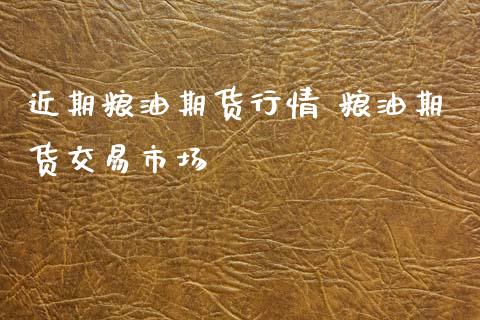 近期粮油期货行情 粮油期
货交易市场